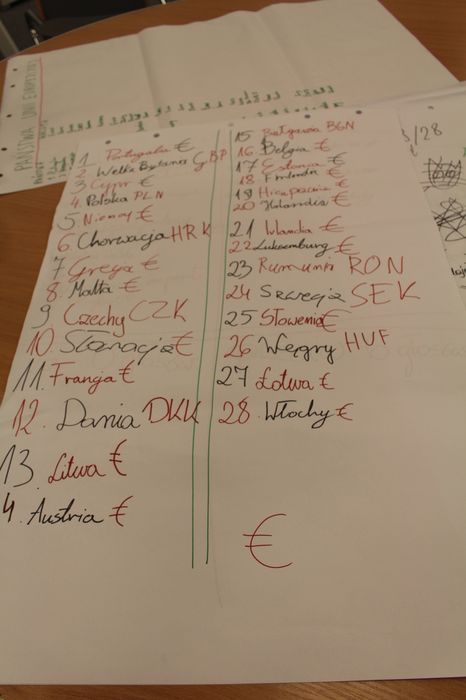 PAŃSTWA UNII EUROPEJSKIEJ
1 Portugalia €
2 Wielka Brytania GBP
3 Cypr €
4. Polska PLN
5. Niemcy €
6 Chorwacja HRK
7 Grecja €
8. Malta €
9 Czechy CZK
10. Słowacja €
11. Francja €
12. Dania DKK
13. Litwa €
4. Austria €
15 Bułgaria BGN
16 Belgia €
17 Estonia €
18 Finlandia €
19 Hiszpania €
20 Holandia €
21 Irlandia €
22 Luksemburg €
23 Rumunia RON
24 Szwecja SEK
25 Słowenia €
26 Węgry HUF
27 Łotwa €
28. Włochy €
€
/28